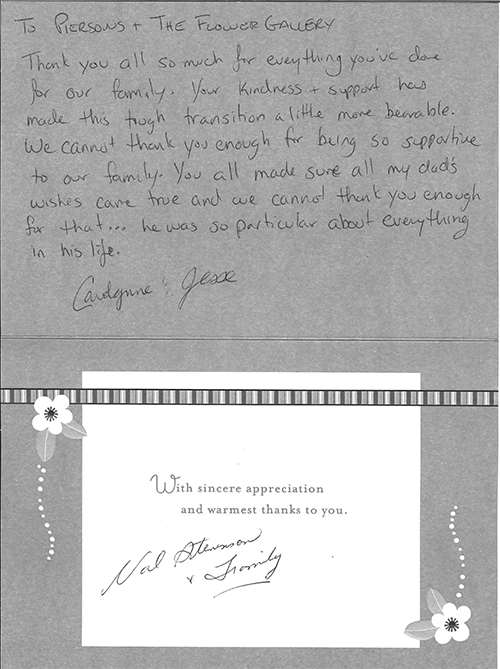 To Piersons + The Flower Gallery
Thank you all so much for everything you've done
for our family. Your kindness + support has
made this tough transition a little more bearable.
We cannot thank you enough for being so supportive
to our family. You all made sure all my dad's
wishes came true and we cannot thank you enough
for that... he was so particular about everything
in his life.
Carolynne & Jesse
With sincere appreciation
and warmest thanks to you.
Val Stevenson
+ Family